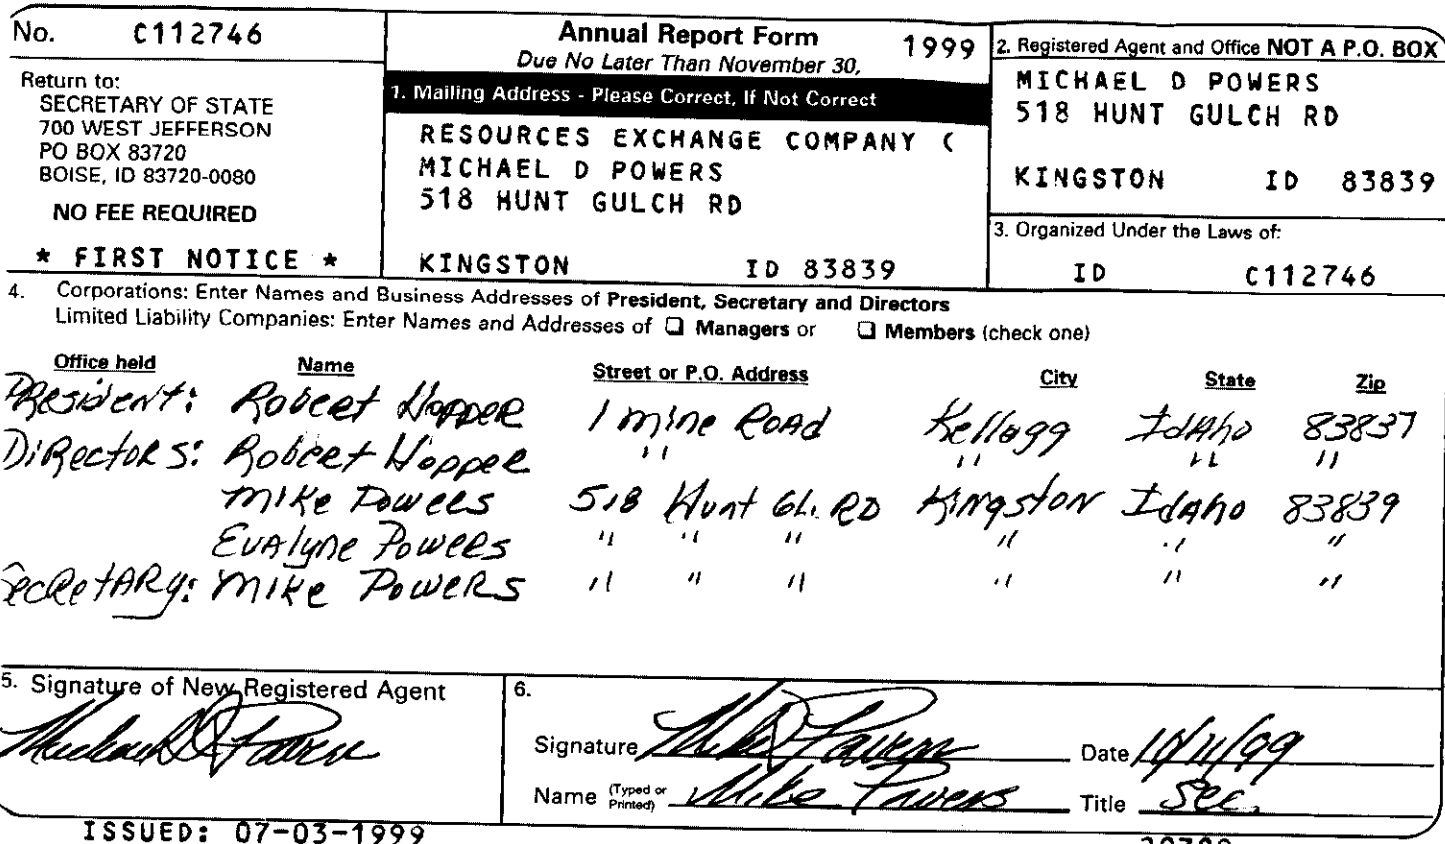 No. C112746
Return to:
SECRETARY OF STATE
700 WEST JEFFERSON
PO BOX 83720
BOISE, ID 83720-0080
NO FEE REQUIRED
* FIRST NOTICE *
Annual Report Form 1999
Due No Later Than November 30,
1. Mailing Address - Please Correct, If Not Correct
RESOURCES EXCHANGE COMPANY (
MICHAEL D POWERS
518 HUNT GULCH RD
KINGSTON ID 83839
2. Registered Agent and Office NOT A P.O. BOX
MICHAEL D POWERS
518 HUNT GULCH RD
KINGSTON ID 83839
3. Organized Under the Laws of:
ID C112746
4. Corporations: Enter Names and Business Addresses of President, Secretary and Directors
Limited Liability Companies: Enter Names and Addresses of ❏ Managers or ❏ Members (check one)
Office held Name Street or P.O. Address City State Zip
President: Robert Hopper 1 mine Road Kellogg Idaho 83837
Directors: Robert Hopper " " " "
Mike Powers 518 Hunt Gl. RD Kingston Idaho 83839
Evalyne Powers " " " " " "
Secretary: Mike Powers " " " " " "
5. Signature of New Registered Agent
Michael D Powers
6.
Signature Mike Powers Date 10/11/99
Name (Typed or Printed) Mike Powers Title Sec.
ISSUED: 07-03-1999